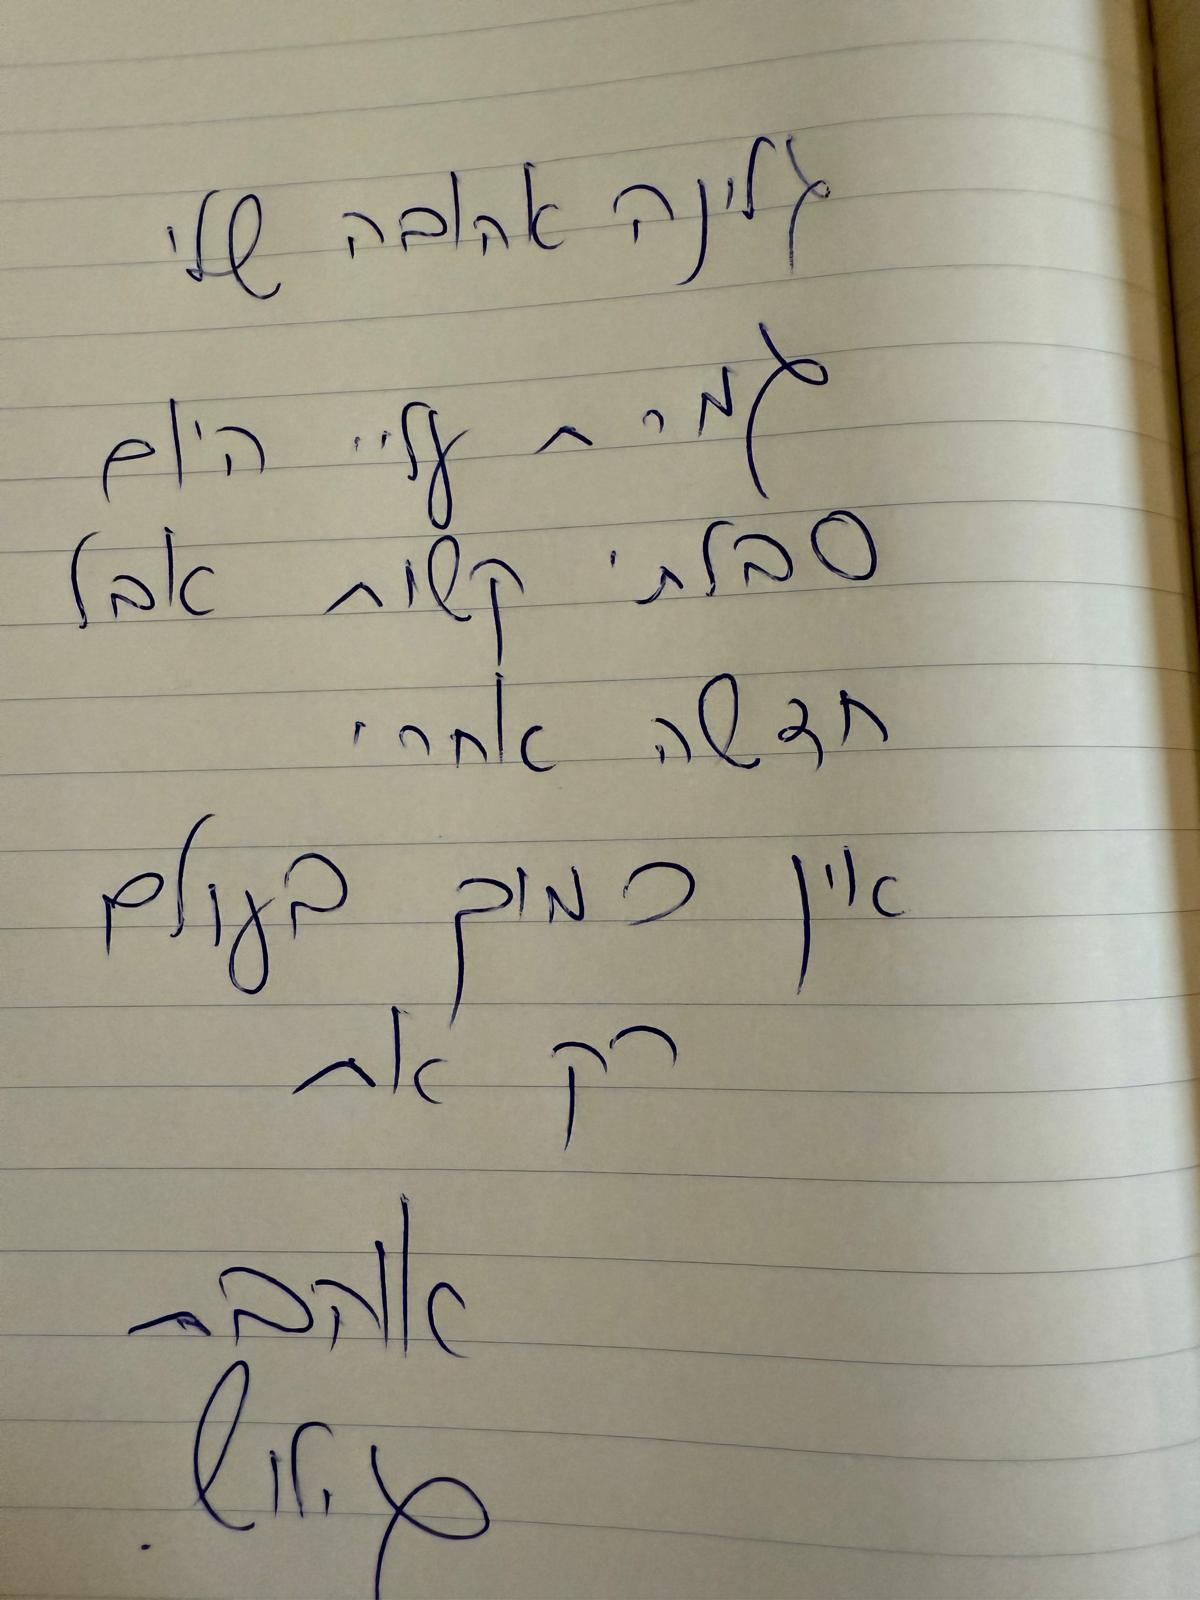 גלינה אהובה שלי
גמרת עליי היום
סבלתי קשות אבל
חדשה אחרי
אין כמוך בעולם
רק את
אוהבת
גילוש